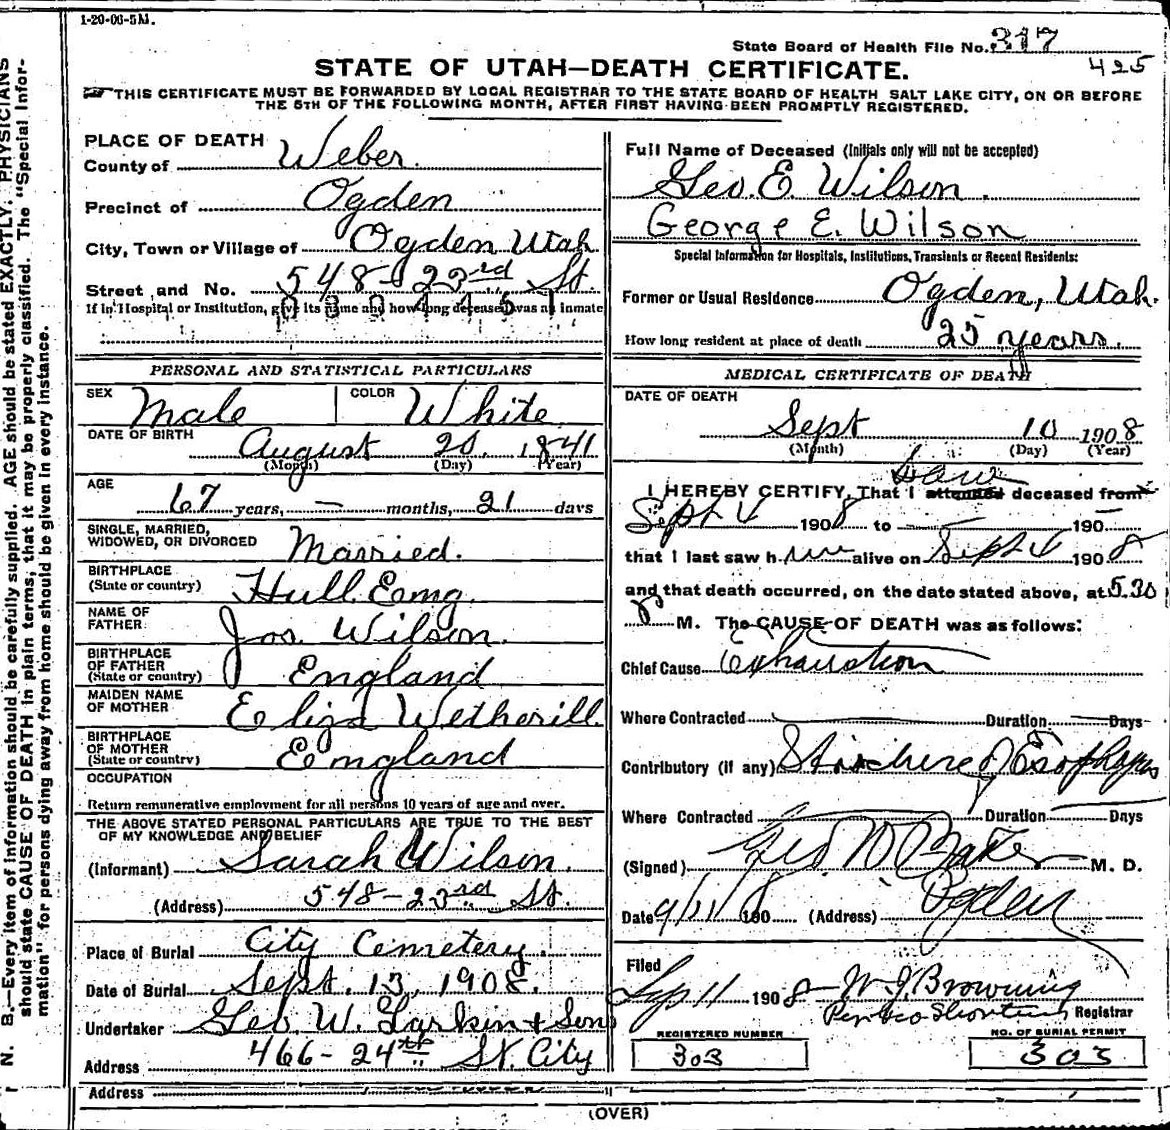 1-20-06-5M.
State Board of Health File No. 317
425
STATE OF UTAH—DEATH CERTIFICATE.
THIS CERTIFICATE MUST BE FORWARDED BY LOCAL REGISTRAR TO THE STATE BOARD OF HEALTH SALT LAKE CITY, ON OR BEFORE
THE 5TH OF THE FOLLOWING MONTH, AFTER FIRST HAVING BEEN PROMPTLY REGISTERED.
PLACE OF DEATH
County of Weber
Precinct of Ogden
City, Town or Village of Ogden Utah
Street and No. 548-23rd St.
If in Hospital or Institution, give its name and how long deceased was an inmate
Full Name of Deceased (Initials only will not be accepted)
Geo. E. Wilson.
George E. Wilson
Special Information for Hospitals, Institutions, Transients or Recent Residents:
Former or Usual Residence Ogden, Utah.
How long resident at place of death 25 years.
PERSONAL AND STATISTICAL PARTICULARS
SEX Male COLOR White
DATE OF BIRTH August 20, 1841
(Month) (Day) (Year)
AGE 67 years, — months, 21 days
SINGLE, MARRIED,
WIDOWED, OR DIVORCED Married.
BIRTHPLACE
(State or country) Hull Eng.
NAME OF
FATHER Jos. Wilson.
BIRTHPLACE
OF FATHER
(State or country) England
MAIDEN NAME
OF MOTHER Eliza Wetherill
BIRTHPLACE
OF MOTHER
(State or country) England
OCCUPATION
Return remunerative employment for all persons 10 years of age and over.
THE ABOVE STATED PERSONAL PARTICULARS ARE TRUE TO THE BEST
OF MY KNOWLEDGE AND BELIEF
(Informant) Sarah Wilson.
(Address) 548-23rd St.
Place of Burial City Cemetery.
Date of Burial Sept. 13, 1908.
Undertaker Geo. W. Larkin + Sons
Address 466-24th St. City
Address
MEDICAL CERTIFICATE OF DEATH
DATE OF DEATH
Sept 10 1908
(Month) (Day) (Year)
saw
I HEREBY CERTIFY, That I attended deceased from
Sept 4 1908 to — 190—
that I last saw him alive on Sept 4 1908
and that death occurred, on the date stated above, at 5.30
P M. The CAUSE OF DEATH was as follows:
Chief Cause Exhaustion
Where Contracted Duration Days
Contributory (if any) Stricture of Esophagus
Where Contracted Duration Days
(Signed) Geo W Baker M. D.
Date 9/11/ 1908 (Address) Ogden
Filed
Sep 11 1908 W. J. Browning
Registrar
REGISTERED NUMBER
303
NO. OF BURIAL PERMIT
303
(OVER)
N. B.—Every item of information should be carefully supplied. AGE should be stated EXACTLY. PHYSICIANS
should state CAUSE OF DEATH in plain terms, that it may be properly classified. The "Special Infor-
mation" for persons dying away from home should be given in every instance.